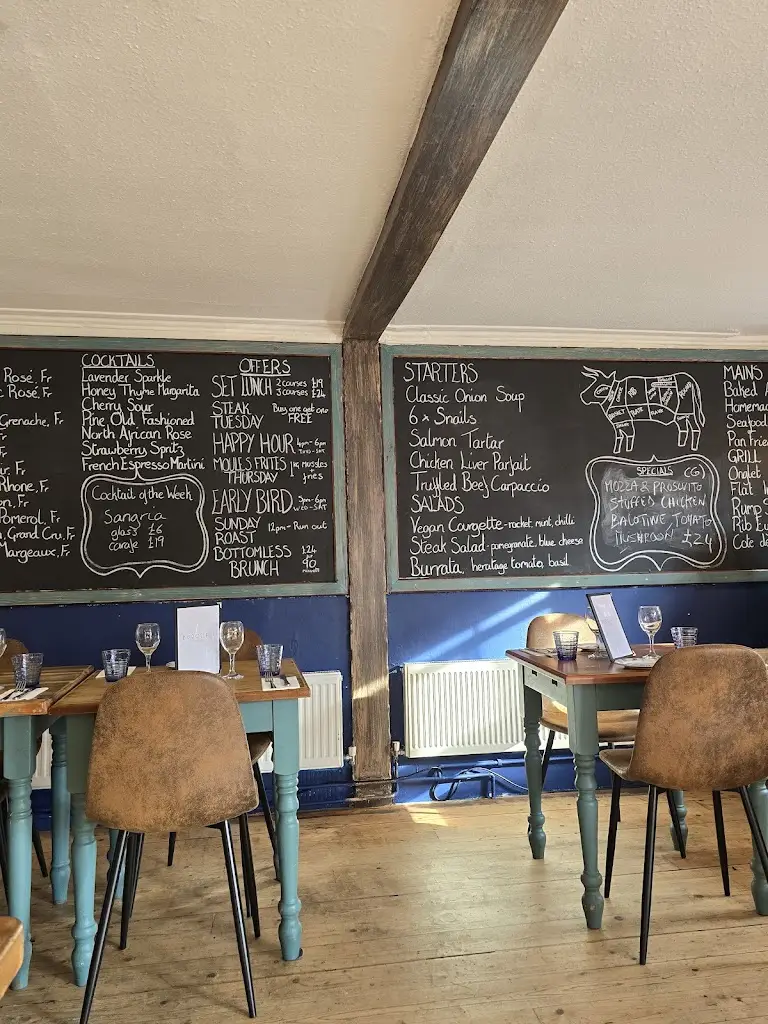 Rosé, Fr
Rosé, Fr
Grenache, Fr
Fr
Rhone, Fr
Pomerol, Fr
Grand Cru, Fr
Margeaux, Fr
COCKTAILS
Lavender Sparkle
Honey Thyme Margarita
Cherry Sour
Pine Old Fashioned
North African Rose
Strawberry Spritz
French Espresso Martini
Cocktail of the Week
Sangria
glass £6
carafe £19
OFFERS
SET LUNCH 2 courses £19
3 courses £24
STEAK TUESDAY Buy one get one FREE
HAPPY HOUR 4pm-6pm
MOULES FRITES THURSDAY 1kg mussles + fries
EARLY BIRD 3pm-6pm
WED-SAT
SUNDAY ROAST 12pm - Run out
BOTTOMLESS BRUNCH £24 for 90 minutes
STARTERS
Classic Onion Soup
6 x Snails
Salmon Tartar
Chicken Liver Parfait
Truffled Beef Carpaccio
SALADS
Vegan Courgette - rocket, mint, chilli
Steak Salad - pomegranate, blue cheese
Burrata, heratage tomato, basil
SPECIALS (G)
MOZZA & PROSCUITO
STUFFED CHICKEN
BALOTINE TOMATO
MUSHROOM £24
MAINS
Baked
Seafood
Pan Fried
GRILL
Onglet
Flat
Rump
Rib
Cote de